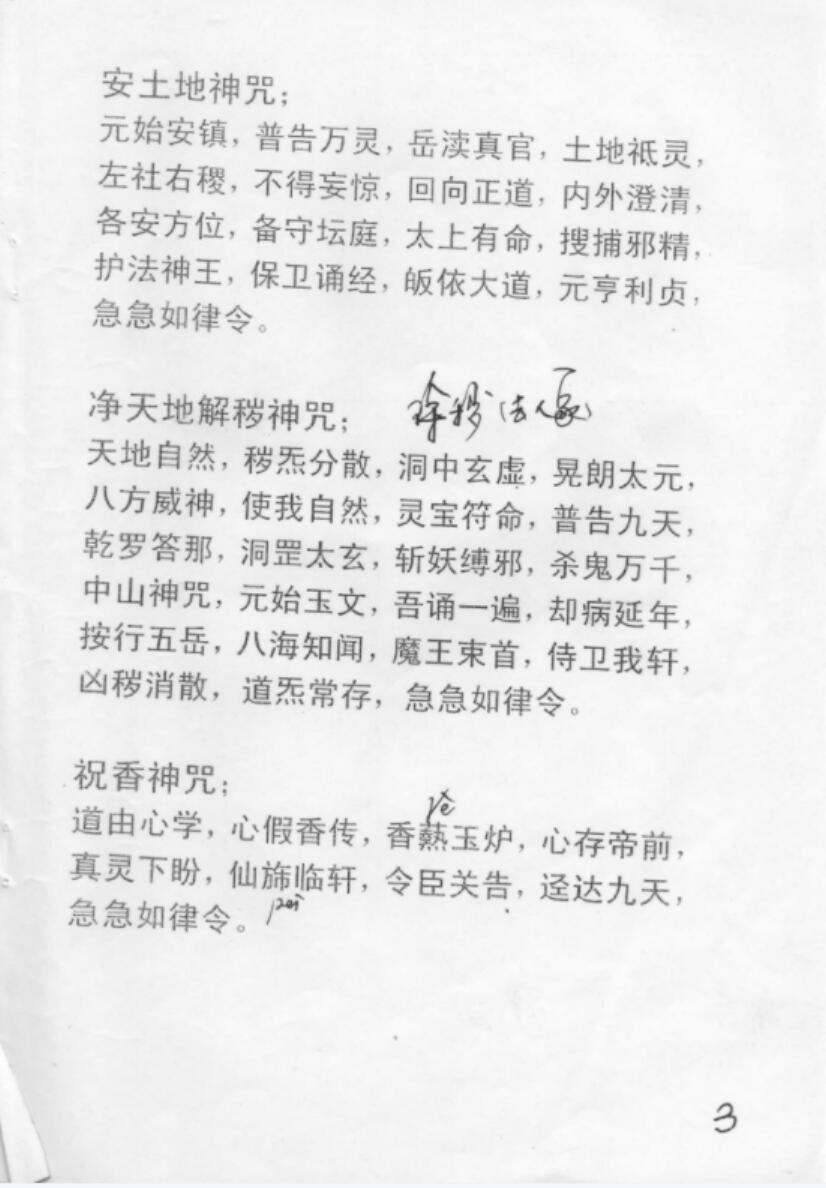 安土地神咒；
元始安镇，普告万灵，岳渎真官，土地祗灵，
左社右稷，不得妄惊，回向正道，内外澄清，
各安方位，备守坛庭，太上有命，搜捕邪精，
护法神王，保卫诵经，皈依大道，元亨利贞，
急急如律令。
净天地解秽神咒；
天地自然，秽炁分散，洞中玄虚，晃朗太元，
八方威神，使我自然，灵宝符命，普告九天，
乾罗答那，洞罡太玄，斩妖缚邪，杀鬼万千，
中山神咒，元始玉文，吾诵一遍，却病延年，
按行五岳，八海知闻，魔王束首，侍卫我轩，
凶秽消散，道炁常存，急急如律令。
祝香神咒；
道由心学，心假香传，香爇玉炉，心存帝前，
真灵下盼，仙旆临轩，令臣关告，迳达九天，
急急如律令。
pei
3